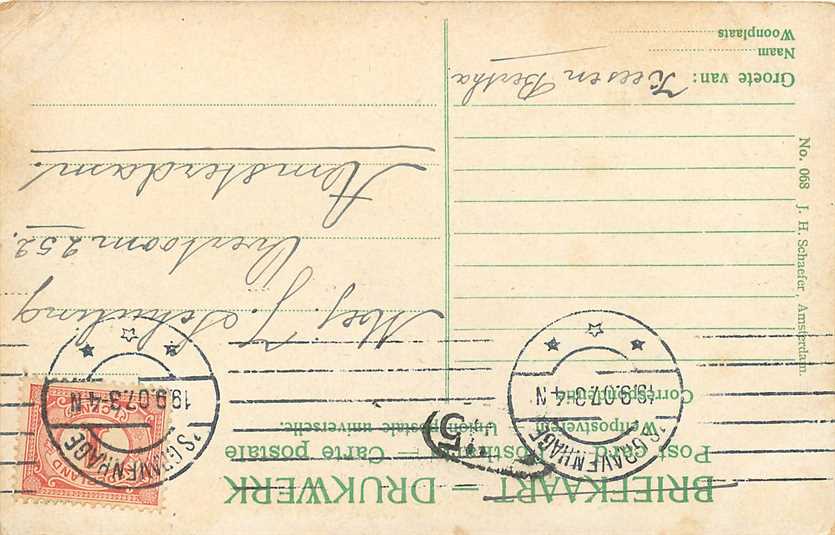 BRIEFKAART = DRUKWERK
Post Card — Postkarte — Carte postale
Weltpostverein — Union postale universelle.
Correspondentie
'S GRAVENHAGE
19.9.07.3-4 N
'S GRAVENHAGE
19.9.07.3-4 N
5
NEDERLAND
Mej. J. Schuling
Overtoom 252.
Amsterdam.
Groete van: Kees en Bertha
Naam
Woonplaats
No. 068 J. H. Schaefer, Amsterdam.